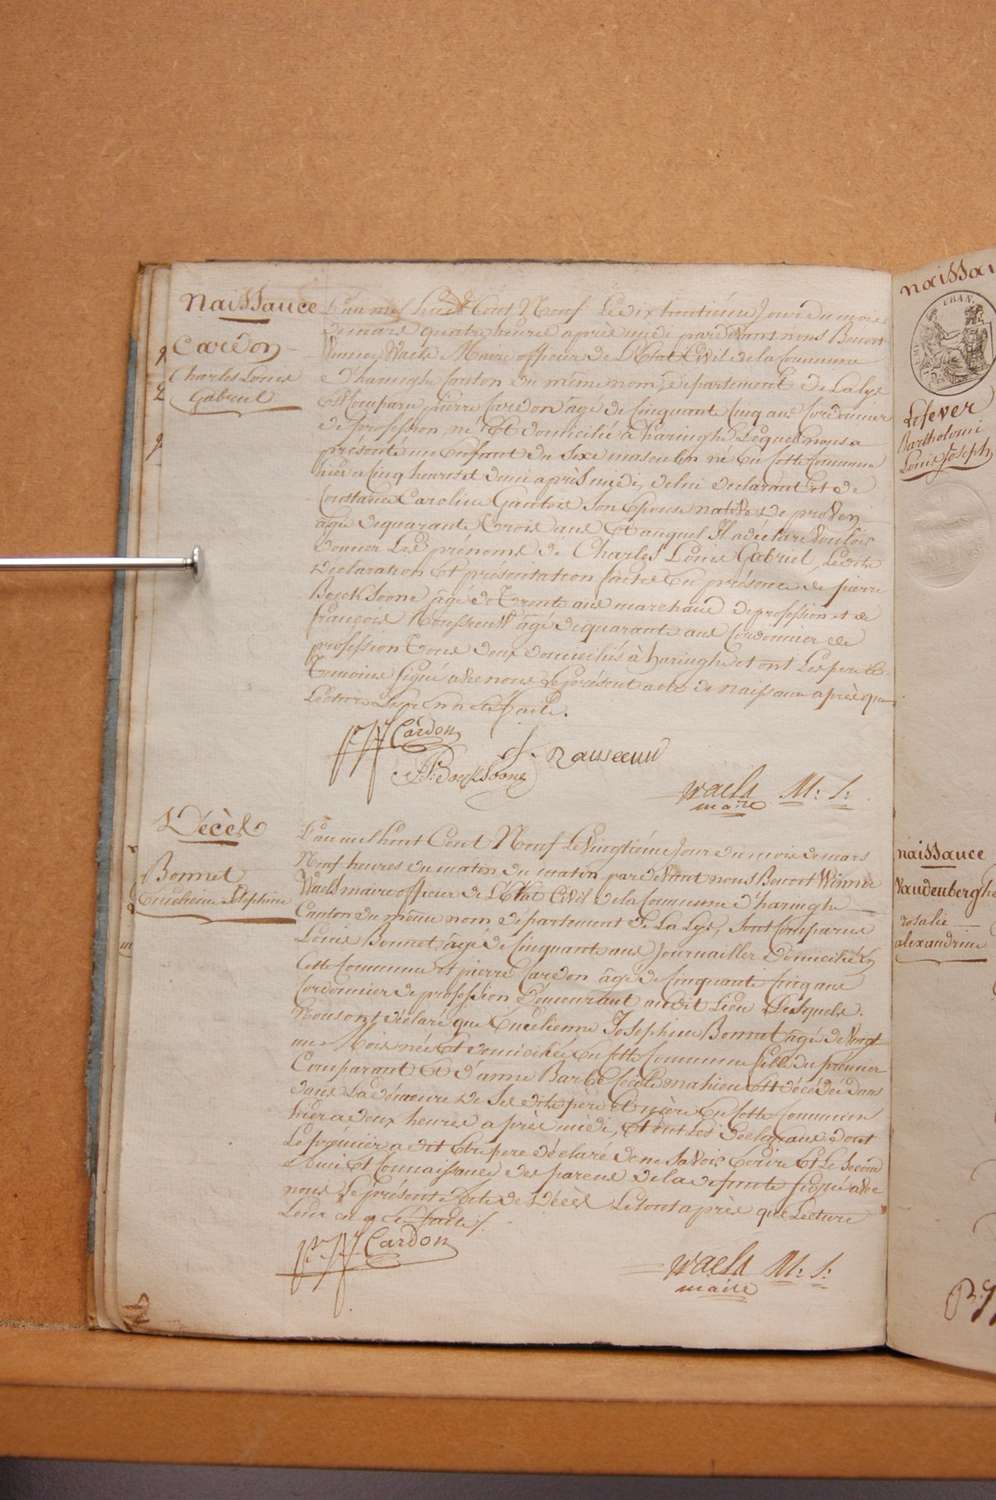 Naissance
Cardon
Charles Louis
Gabriel
L'an mil huit Cent Neuf Le dix huitième Jour du mois
de mars quatre heures après midi pardevant nous Benoit
Winnoc Waels Maire officier de L'Etat Civil de la Commune
d'haringhe Canton du même nom, département de La Lys
est Comparu pierre Cardon âgé de Cinquante Cinq ans Cordonnier
de profession né et domicilié à haringhe Lequel nous a
présenté un Enfant du Sexe masculin né en Cette Commune
hier a Cinq heures et demi après midi, de lui declarant et de
Constance Caroline Son Epouse native de proven
âgée de quarante trois ans Et auquel Il a déclaré vouloir
donner Les prénoms de Charles Louis Gabriel, Les dits
declaration et présentation faites En présence de pierre
BoeckSoone âgé de Trente ans marchand de profession et de
françois Rousseeuw âgé de quarante ans Cordonnier de
profession tous deux domiciliés à haringhe et ont Les pere et
temoins Signé avec nous Le présent acte de naissance après que
Lecture Leur En a été faite.
Cardon
BoeckSoone
f. Rousseeuw
Waels M: S:
maire
Décès
Bonnet
Eucelienne Josephine
L'an mil huit Cent Neuf Le vingtième Jour du mois de mars
Neuf heures du matin du matin pardevant nous Benoit Winnoc
Waels maire officier de L'Etat Civil de la Commune d'haringhe
Canton du même nom département de La Lys, Sont Comparus
Louis Bonnet âgé de Cinquante ans Journaillier Domicilié En
Cette Commune et pierre Cardon âgé de Cinquante Cinq ans
Cordonnier de profession Demeurant audit Lieu, Lesquels
Nous ont déclaré que Eucelienne Josephine Bonnet agée de vingt
un Mois née et domiciliée En Cette Commune fille du prémier
Comparant Et d'anne Barbe Cécile mahieu est décédée dans
dans La démeure de Ses dits père et mère En Cette Commune
hier a deux heures après midi, Et ont Les Declarans dont
Le prémier a dit Etre pere déclaré de ne Savoir Ecrire Et Le Second
Ami Et Connaissance des parens de la defunte Signé avec
nous Le présent acte de Décès Le tout après que Lecture
Leur en a été faite.
Cardon
Waels M: S:
maire
Naissan
FRAN.
Lefever
Bartholomé
Louis Joseph
Naissance
Vandenberghe
rosalie
alexandrine